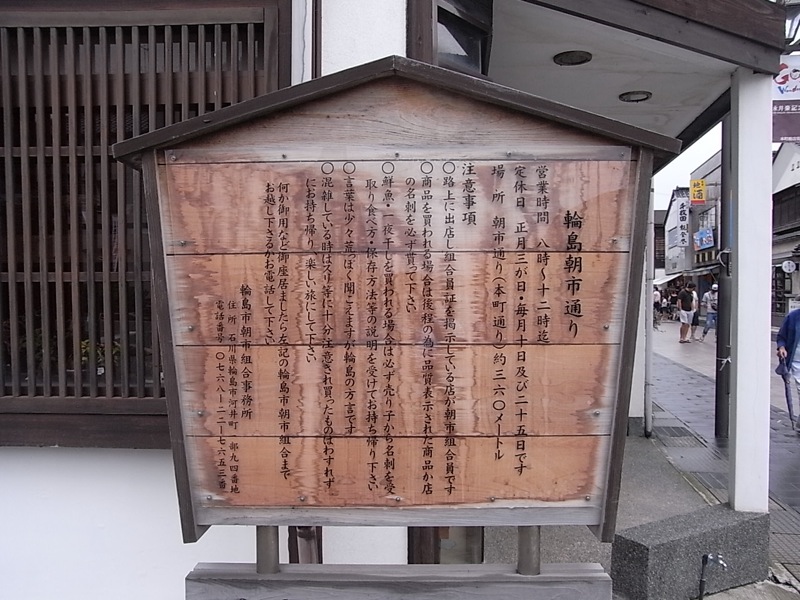 輪島朝市通り
営業時間 八時～十二時迄
定休日 正月三が日・毎月十日及び二十五日です
場所 朝市通り(本町通り)約三六〇メートル
注意事項
〇路上に出店し組合員証を掲示している店が朝市組合員です
〇商品を買われる場合は後程の為に品質表示された商品か店
の名刺を必ず貰って下さい
〇鮮魚・一夜干しを買われる場合は必ず売り子から名刺を受
取り食べ方・保存方法等の説明を受けてお持ち帰り下さい
〇言葉は少々荒っぽく聞こえますが輪島の方言です
〇混雑している時はスリ等に十分注意され買ったものはわすれず
にお持ち帰り、楽しい旅にして下さい
何か御用など御座居ましたら左記の輪島市朝市組合まで
お越し下さるかお電話して下さい
輪島市朝市組合事務所
住所 石川県輪島市河井町一部九四番地
電話番号 〇七六八ー二二ー七六五三番